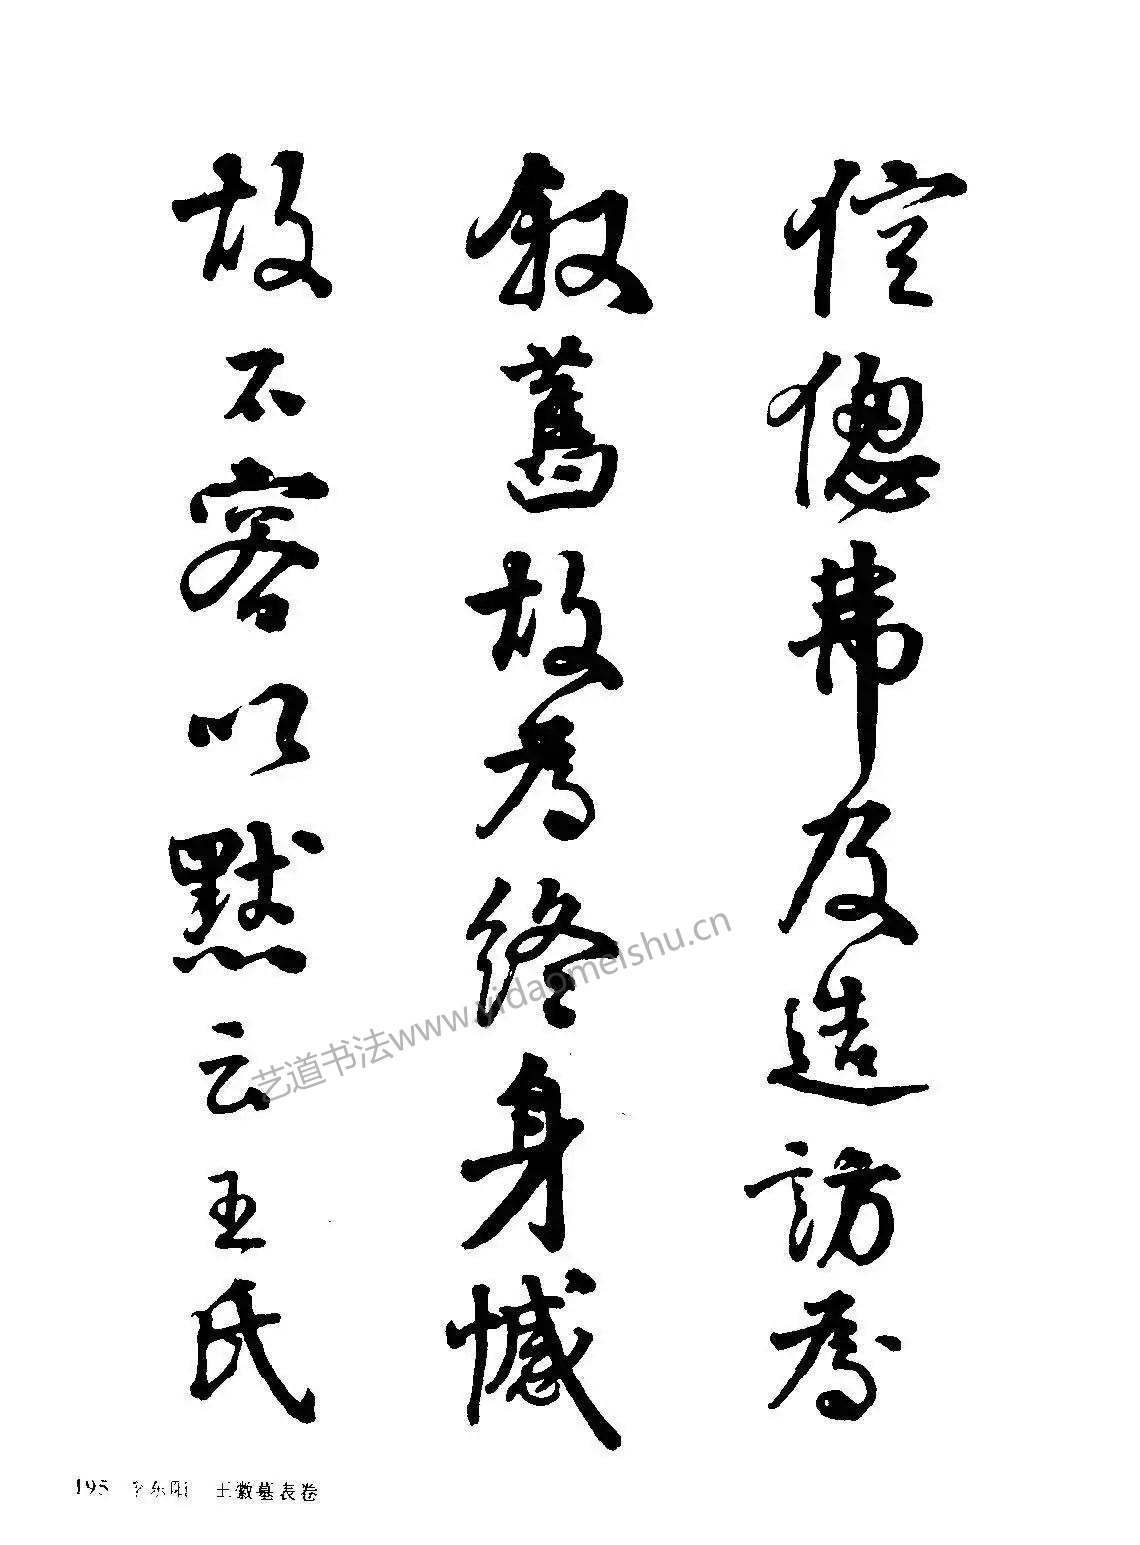 倥傯弗及造訪為
叙舊故為終身憾
故不容以默云王氏
艺道书法www.yidaomeishu.cn
195 李东阳 王徽墓表卷